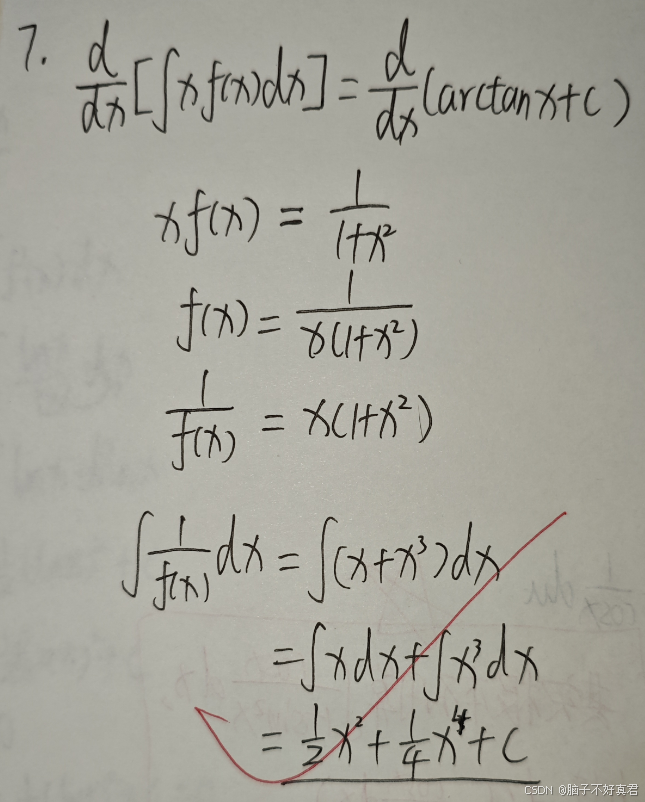 7. d/dx[∫xf(x)dx] = d/dx(arctanx+c)
xf(x) = 1/(1+x²)
f(x) = 1/(x(1+x²))
1/f(x) = x(1+x²)
∫1/f(x)dx = ∫(x+x³)dx
= ∫xdx+∫x³dx
= 1/2x²+1/4x⁴+c
CSDN @脑子不好真君